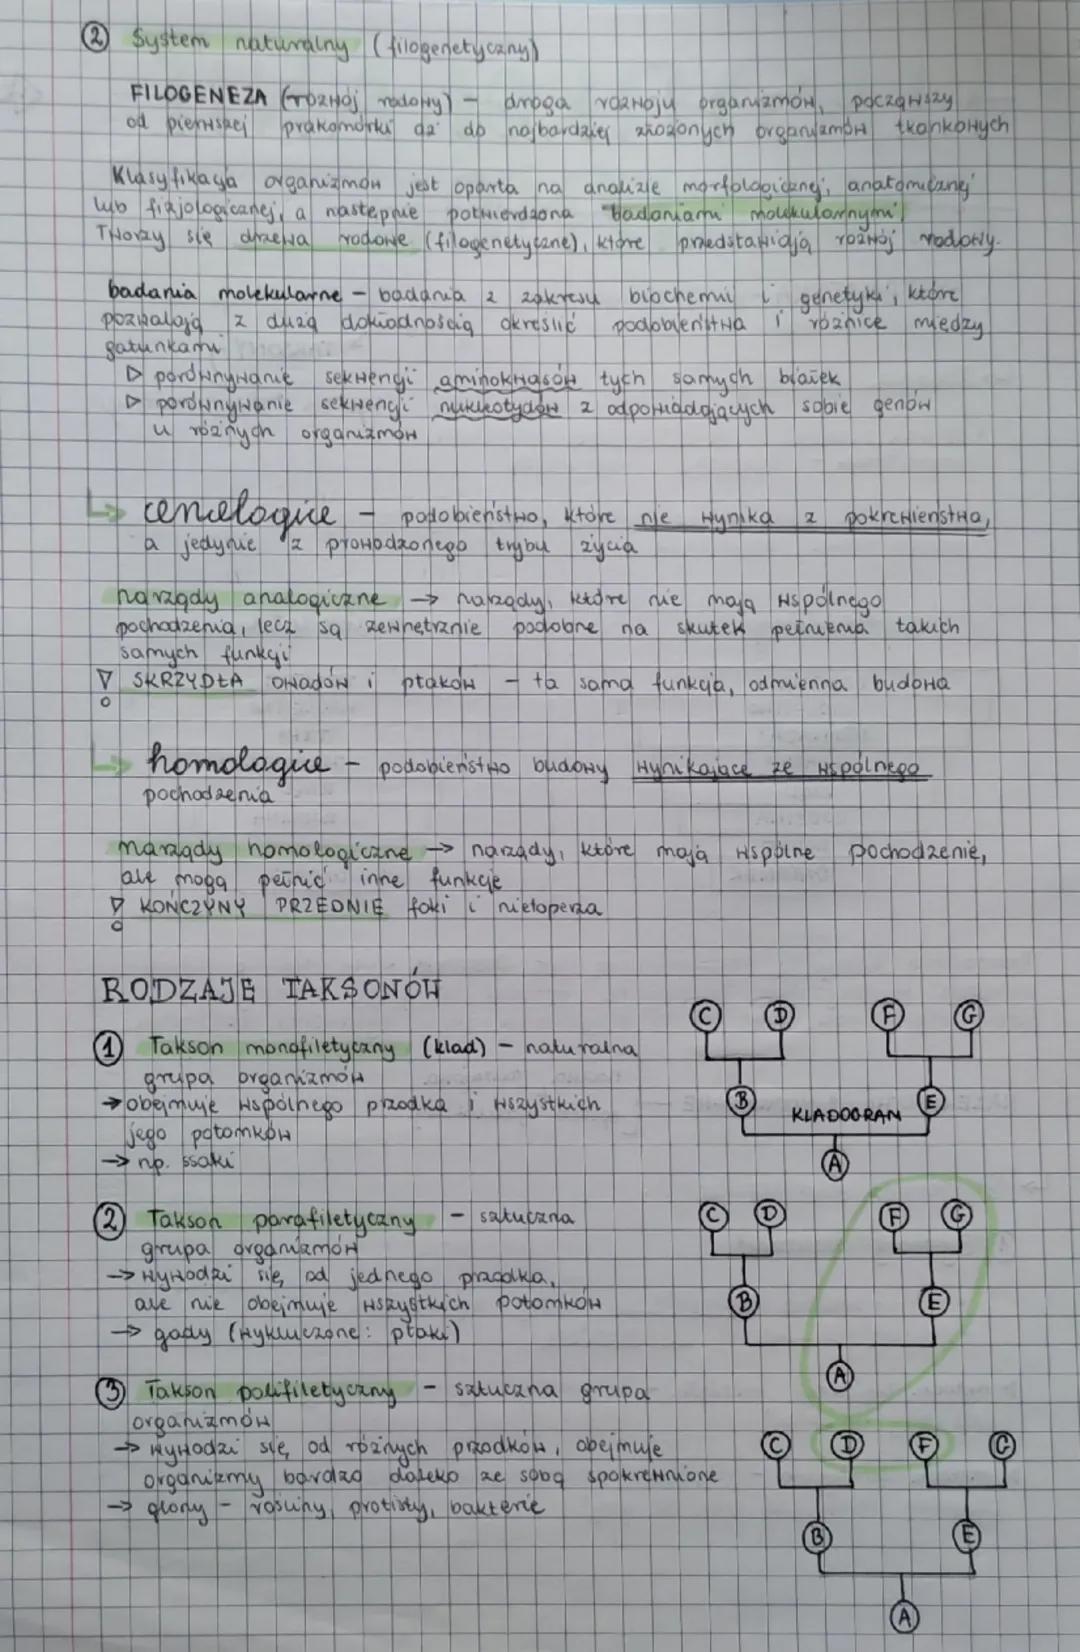 ② System naturalny (filogenetyczny)
FILOGENEZA (rozwój rodowy) – droga rozwoju organizmów, począwszy
od pierwszej prakomórki aż do najbardziej złożonych organizmów tkankowych
Klasyfikacja organizmów jest oparta na analizie morfologicznej, anatomicznej
lub fizjologicznej, a następnie potwierdzona "badaniami molekularnymi"
Tworzy się drzewa rodowe (filogenetyczne), które przedstawiają rozwój rodowy.
badania molekularne – badania z zakresu biochemii i genetyki, które
pozwalają z dużą dokładnością określić podobieństwa i różnice między
gatunkami
▷ porównywanie sekwencji aminokwasów tych samych białek
▷ porównywanie sekwencji nukleotydów z odpowiadających sobie genów
u różnych organizmów
↳ – podobieństwo, które nie wynika z pokrewieństwa,
a jedynie z prowadzonego trybu życia
narządy analogiczne → narządy, które nie mają wspólnego
pochodzenia, lecz są zewnętrznie podobne na skutek pełnienia takich
samych funkcji
SKRZYDŁA owadów i ptaków – ta sama funkcja, odmienna budowa
↳ homologie – podobieństwo budowy wynikające ze wspólnego
pochodzenia
narządy homologiczne → narządy, które mają wspólne pochodzenie,
ale mogą pełnić inne funkcje
KOŃCZYNY PRZEDNIE foki i nietoperza
RODZAJE TAKSONÓW
① Takson monofiletyczny (klad) – naturalna
grupa organizmów
→ obejmuje wspólnego przodka i wszystkich
jego potomków
→ np. ssaki
C D F G
B KLADOGRAM E
A
② Takson parafiletyczny – sztuczna
grupa organizmów
→ wywodzi się od jednego przodka,
ale nie obejmuje wszystkich potomków
→ gady (wykluczone: ptaki)
C D F G
B E
A
③ Takson polifiletyczny – sztuczna grupa
organizmów
→ wywodzi się od różnych przodków, obejmuje
organizmy bardzo daleko ze sobą spokrewnione
→ glony – rośliny, protisty, bakterie
C D F G
B E
A